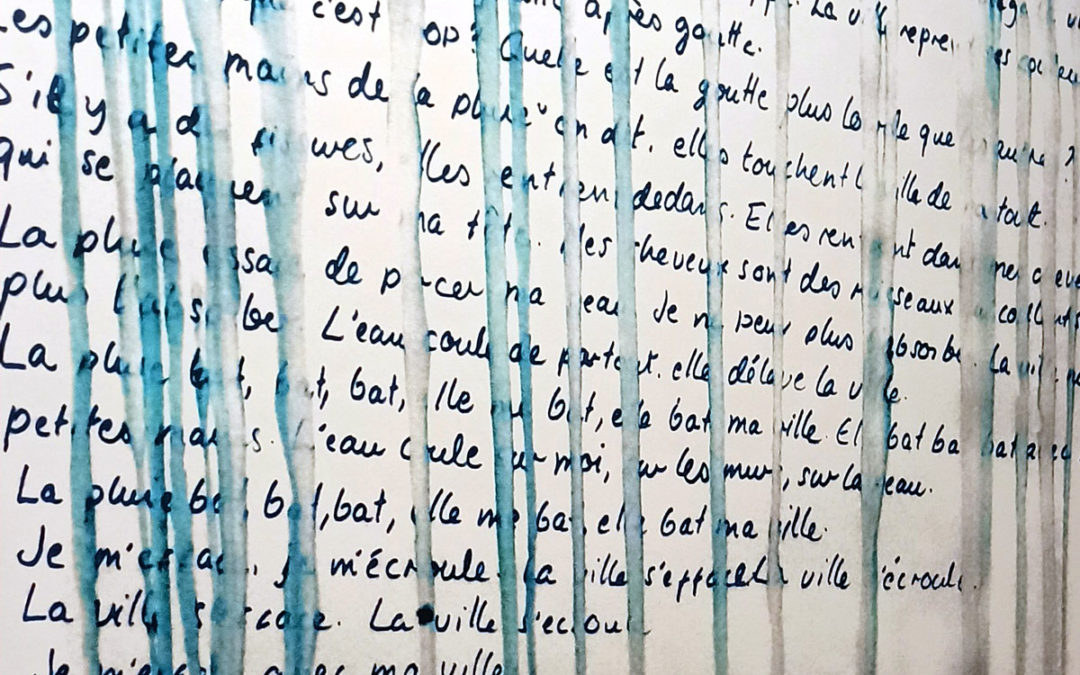 après goutte. La ville reprend ses
c'est Quelle est la goutte plus que l'autre ?
Les petites mains de la pluie on dit. elles touchent la ville de
S'il y a des fissures, elles entrent dedans. Elles rentrent dans mes cheveux
qui se plaquent sur ma tête. Mes cheveux sont des ruisseaux collants
La pluie essaie de percer ma peau. Je ne peux plus absorber. La ville ne
plus l'absorber. L'eau coule de partout. elle délave la ville.
La pluie bat, bat, bat, elle me bat, elle bat ma ville. Elle bat bat bat avec
petites mains. L'eau coule sur moi, sur les murs, sur la peau.
La pluie bat, bat, bat, elle me bat, elle bat ma ville.
Je m'efface, je m'écroule. La ville s'efface. La ville s'écroule.
La ville s'efface. La ville s'écroule.
Je m'efface avec ma ville